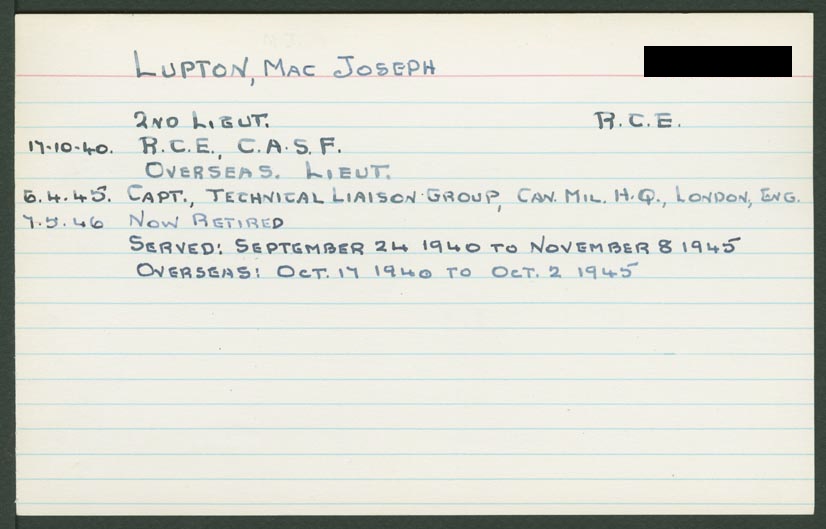 LUPTON, MAC JOSEPH
2ND LIEUT. R.C.E.
17-10-40. R.C.E., C.A.S.F.
OVERSEAS. LIEUT.
6.4.45. CAPT., TECHNICAL LIAISON GROUP, CAN. MIL. H.Q., LONDON, ENG.
7.5.46 NOW RETIRED
SERVED: SEPTEMBER 24 1940 TO NOVEMBER 8 1945
OVERSEAS: OCT. 17 1940 TO OCT. 2 1945